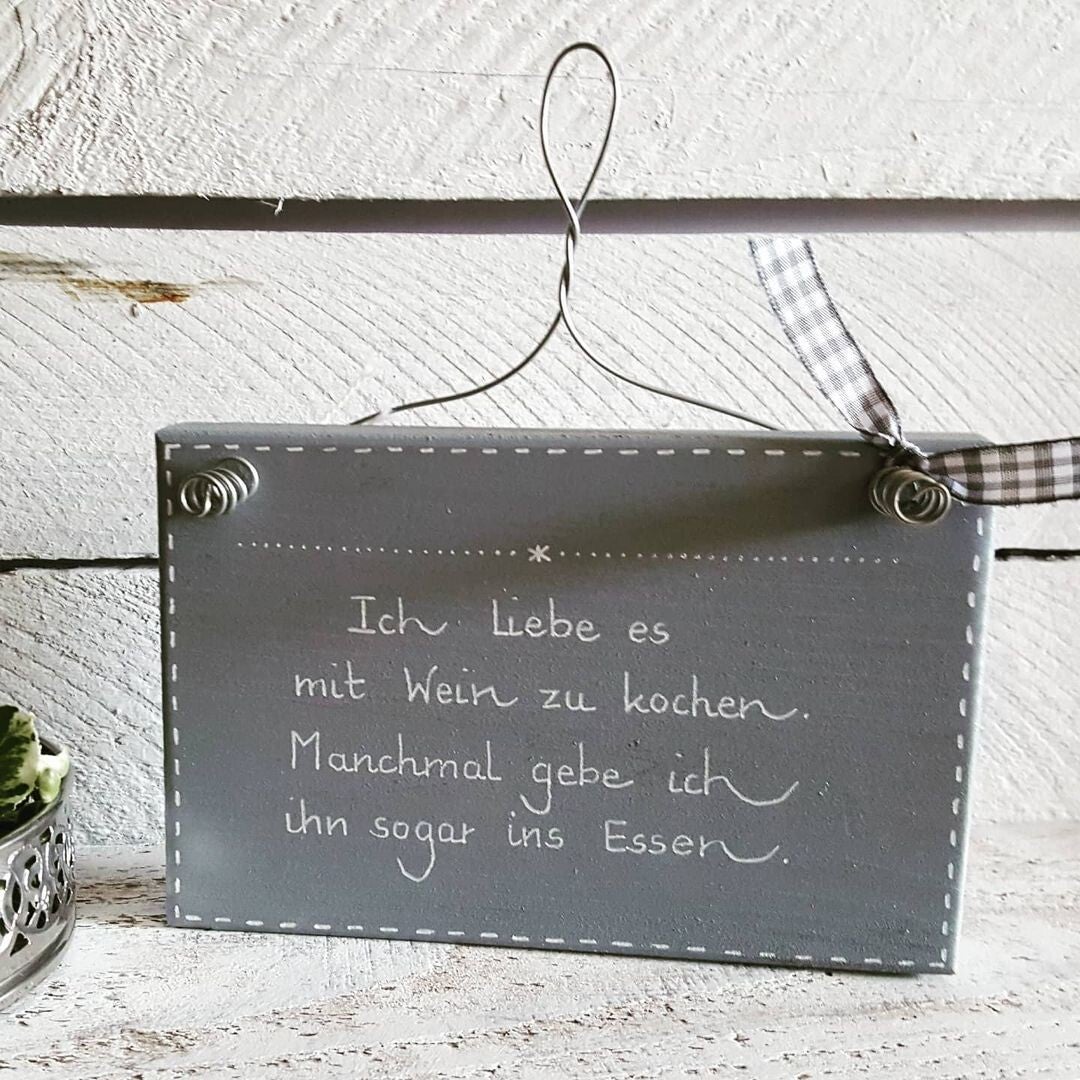 Ich Liebe es
mit Wein zu kochen.
Manchmal gebe ich
ihn sogar ins Essen.